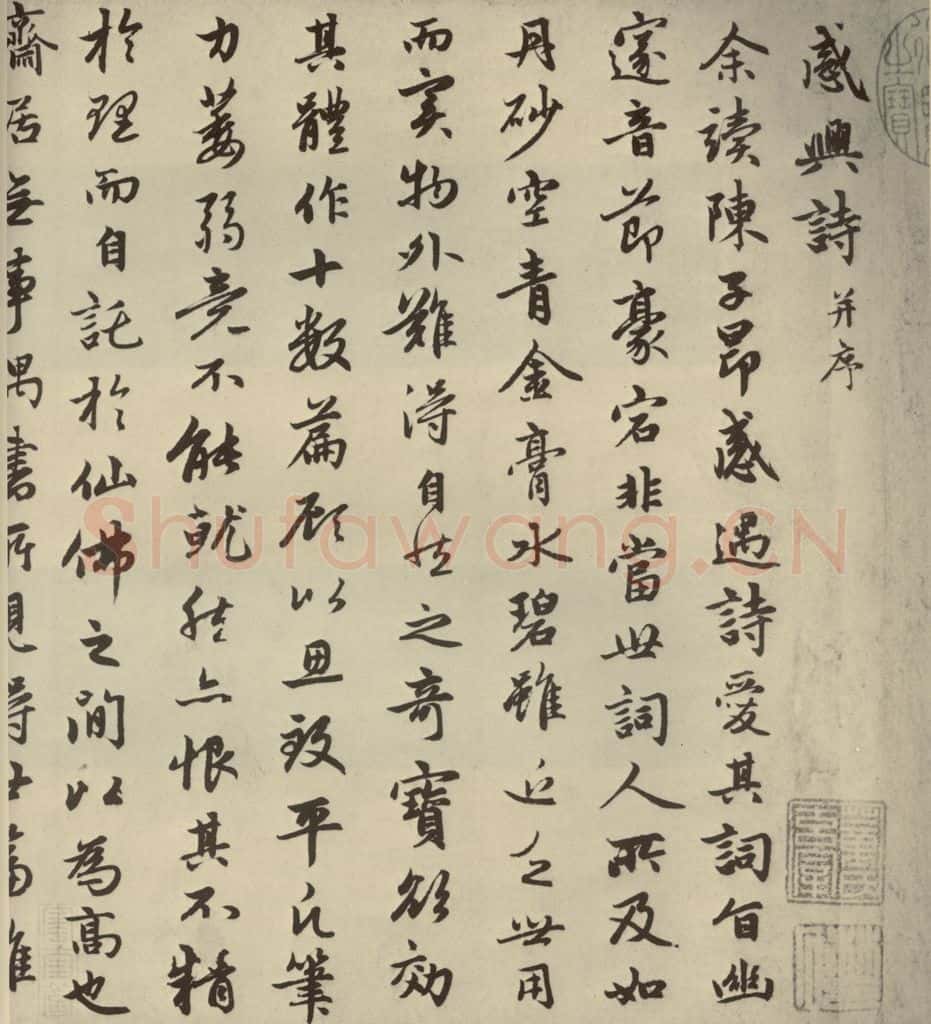 感興詩 并序
余讀陳子昂感遇詩愛其詞旨幽
邃音節豪宕非當世詞人所及如
丹砂空青金膏水碧雖近乏世用
而實物外難得自然之奇寶欲効
其體作十數篇顧以思致平凡筆
力萎弱竟不能就然亦恨其不精
於理而自託於仙佛之間以為高也
齋居無事偶書所見得廿篇雖
Shufawang.CN